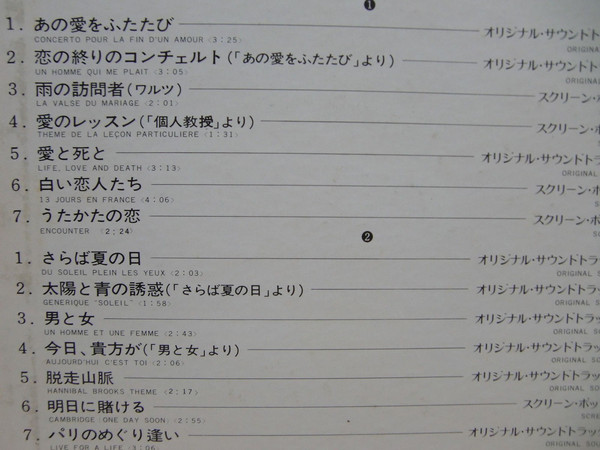 ❶
1. あの愛をふたたび オリジナル・サウンドト
CONCERTO POUR LA FIN D'UN AMOUR (3:25) ORIGINAL
2. 恋の終りのコンチェルト(「あの愛をふたたび」より) オリジナル・サウンドト
UN HOMME QUI ME PLAIT (3:05) ORIGINAL
3. 雨の訪問者(ワルツ) スクリーン・
LA VALSE DU MARIAGE (2:01)
4. 愛のレッスン(「個人教授」より) スクリーン・ポ
THEME DE LA LEÇON PARTICULIERE (1:31)
5. 愛と死と オリジナル・サウンドトラ
LIFE, LOVE AND DEATH (3:13) ORIGINAL
6. 白い恋人たち スクリーン・ポ
13 JOURS EN FRANCE (4:06)
7. うたかたの恋 スクリーン・ポ
ENCOUNTER (2:24)
❷
1. さらば夏の日 オリジナル・サウンドトラ
DU SOLEIL PLEIN LES YEUX (2:03) ORIGINAL S
2. 太陽と青の誘惑(「さらば夏の日」より) オリジナル・サウンドトラッ
GENERIQUE "SOLEIL" (1:58) ORIGINAL SO
3. 男と女 オリジナル・サウンドトラッ
UN HOMME ET UNE FEMME (2:43) ORIGINAL SO
4. 今日、貴方が(「男と女」より) オリジナル・サウンドトラッ
AUJOURD'HUI C'EST TOI (2:06) ORIGINAL SO
5. 脱走山脈 オリジナル・サウンドトラッ
HANNIBAL BROOKS THEME (2:17) ORIGINAL SOU
6. 明日に賭ける スクリーン・ポッ
CAMBRIDGE (ONE DAY SOON) (2:55) SCREE
7. パリのめぐり逢い オリジナル・サウンドトラック
LIVE FOR A LIFE (3:06) ORIGINAL SOU